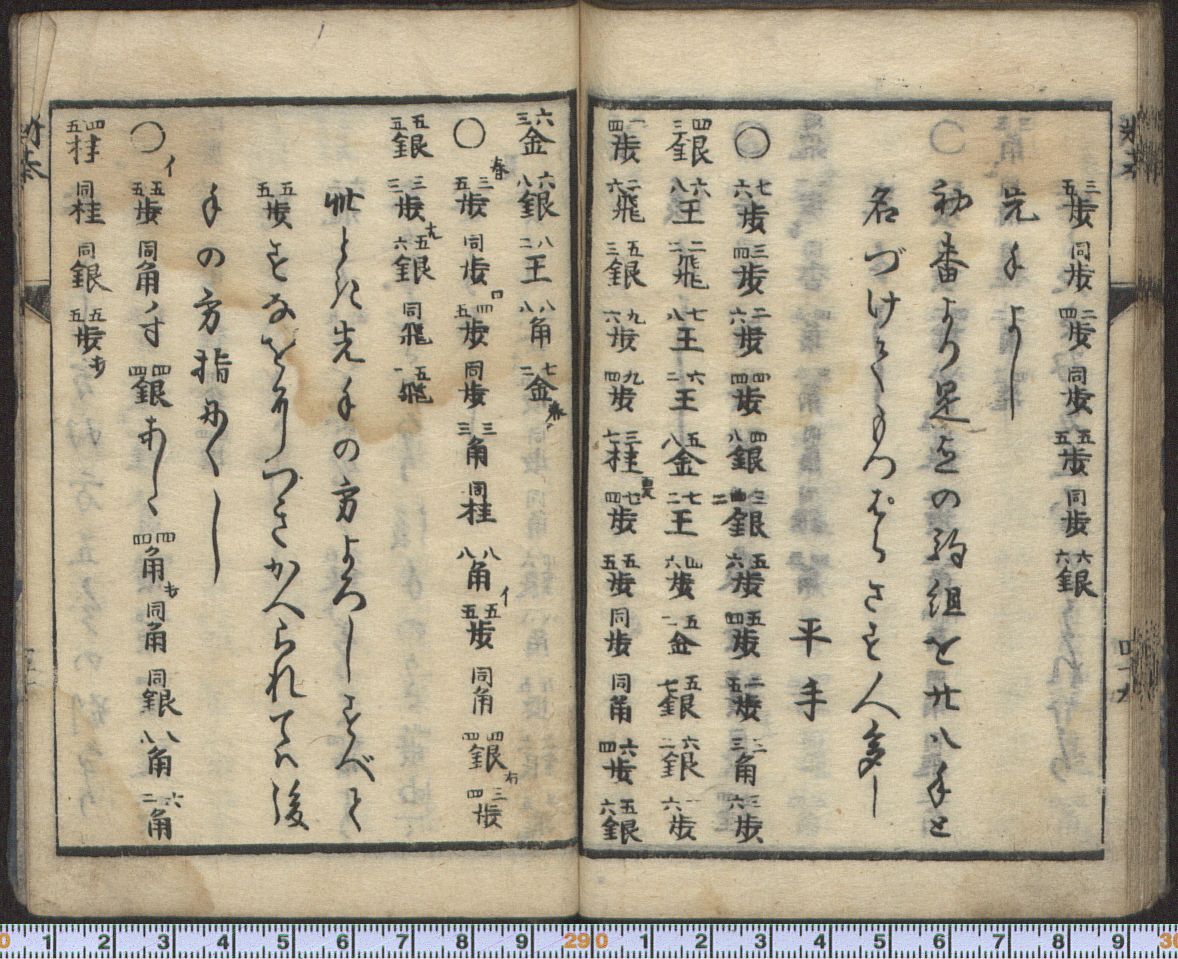 三五歩 同歩 二四歩 同歩 五五歩 同歩 六六銀
先手よし
初番より是迄の駒組を廿八手と
名づけてもつぱらさす人多し
平手
〇 七六歩 三四歩 二六歩 四四歩 四八銀 三二銀 五六歩 五四歩 二五歩 三三角 三六歩
四三銀 六八王 二二飛 七八王 六二王 五八金 七二王 四六歩 五二金 五七銀 六二銀 一六歩
一四歩 二六飛 五三銀 九六歩 九四歩 三七桂 七四歩 五五歩 同歩 同角 六四歩 五六銀
六三金 六八銀 八二王 八八角 七二金
〇 三五歩 同歩 四五歩 同歩 三三角 同桂 八八角 イ 五五歩 同角 四四銀 三四歩
五五銀 三三歩 五六銀 同飛 五一飛
此とき先手の方よろしすべて
五五歩をなをしつきかへられては後
手の方指にくし
〇 イ 五五歩 同角ノ寸 四四銀あしゝ 四四角 同角 同銀 八八角 六二角
四五桂 同桂 同銀 五五歩